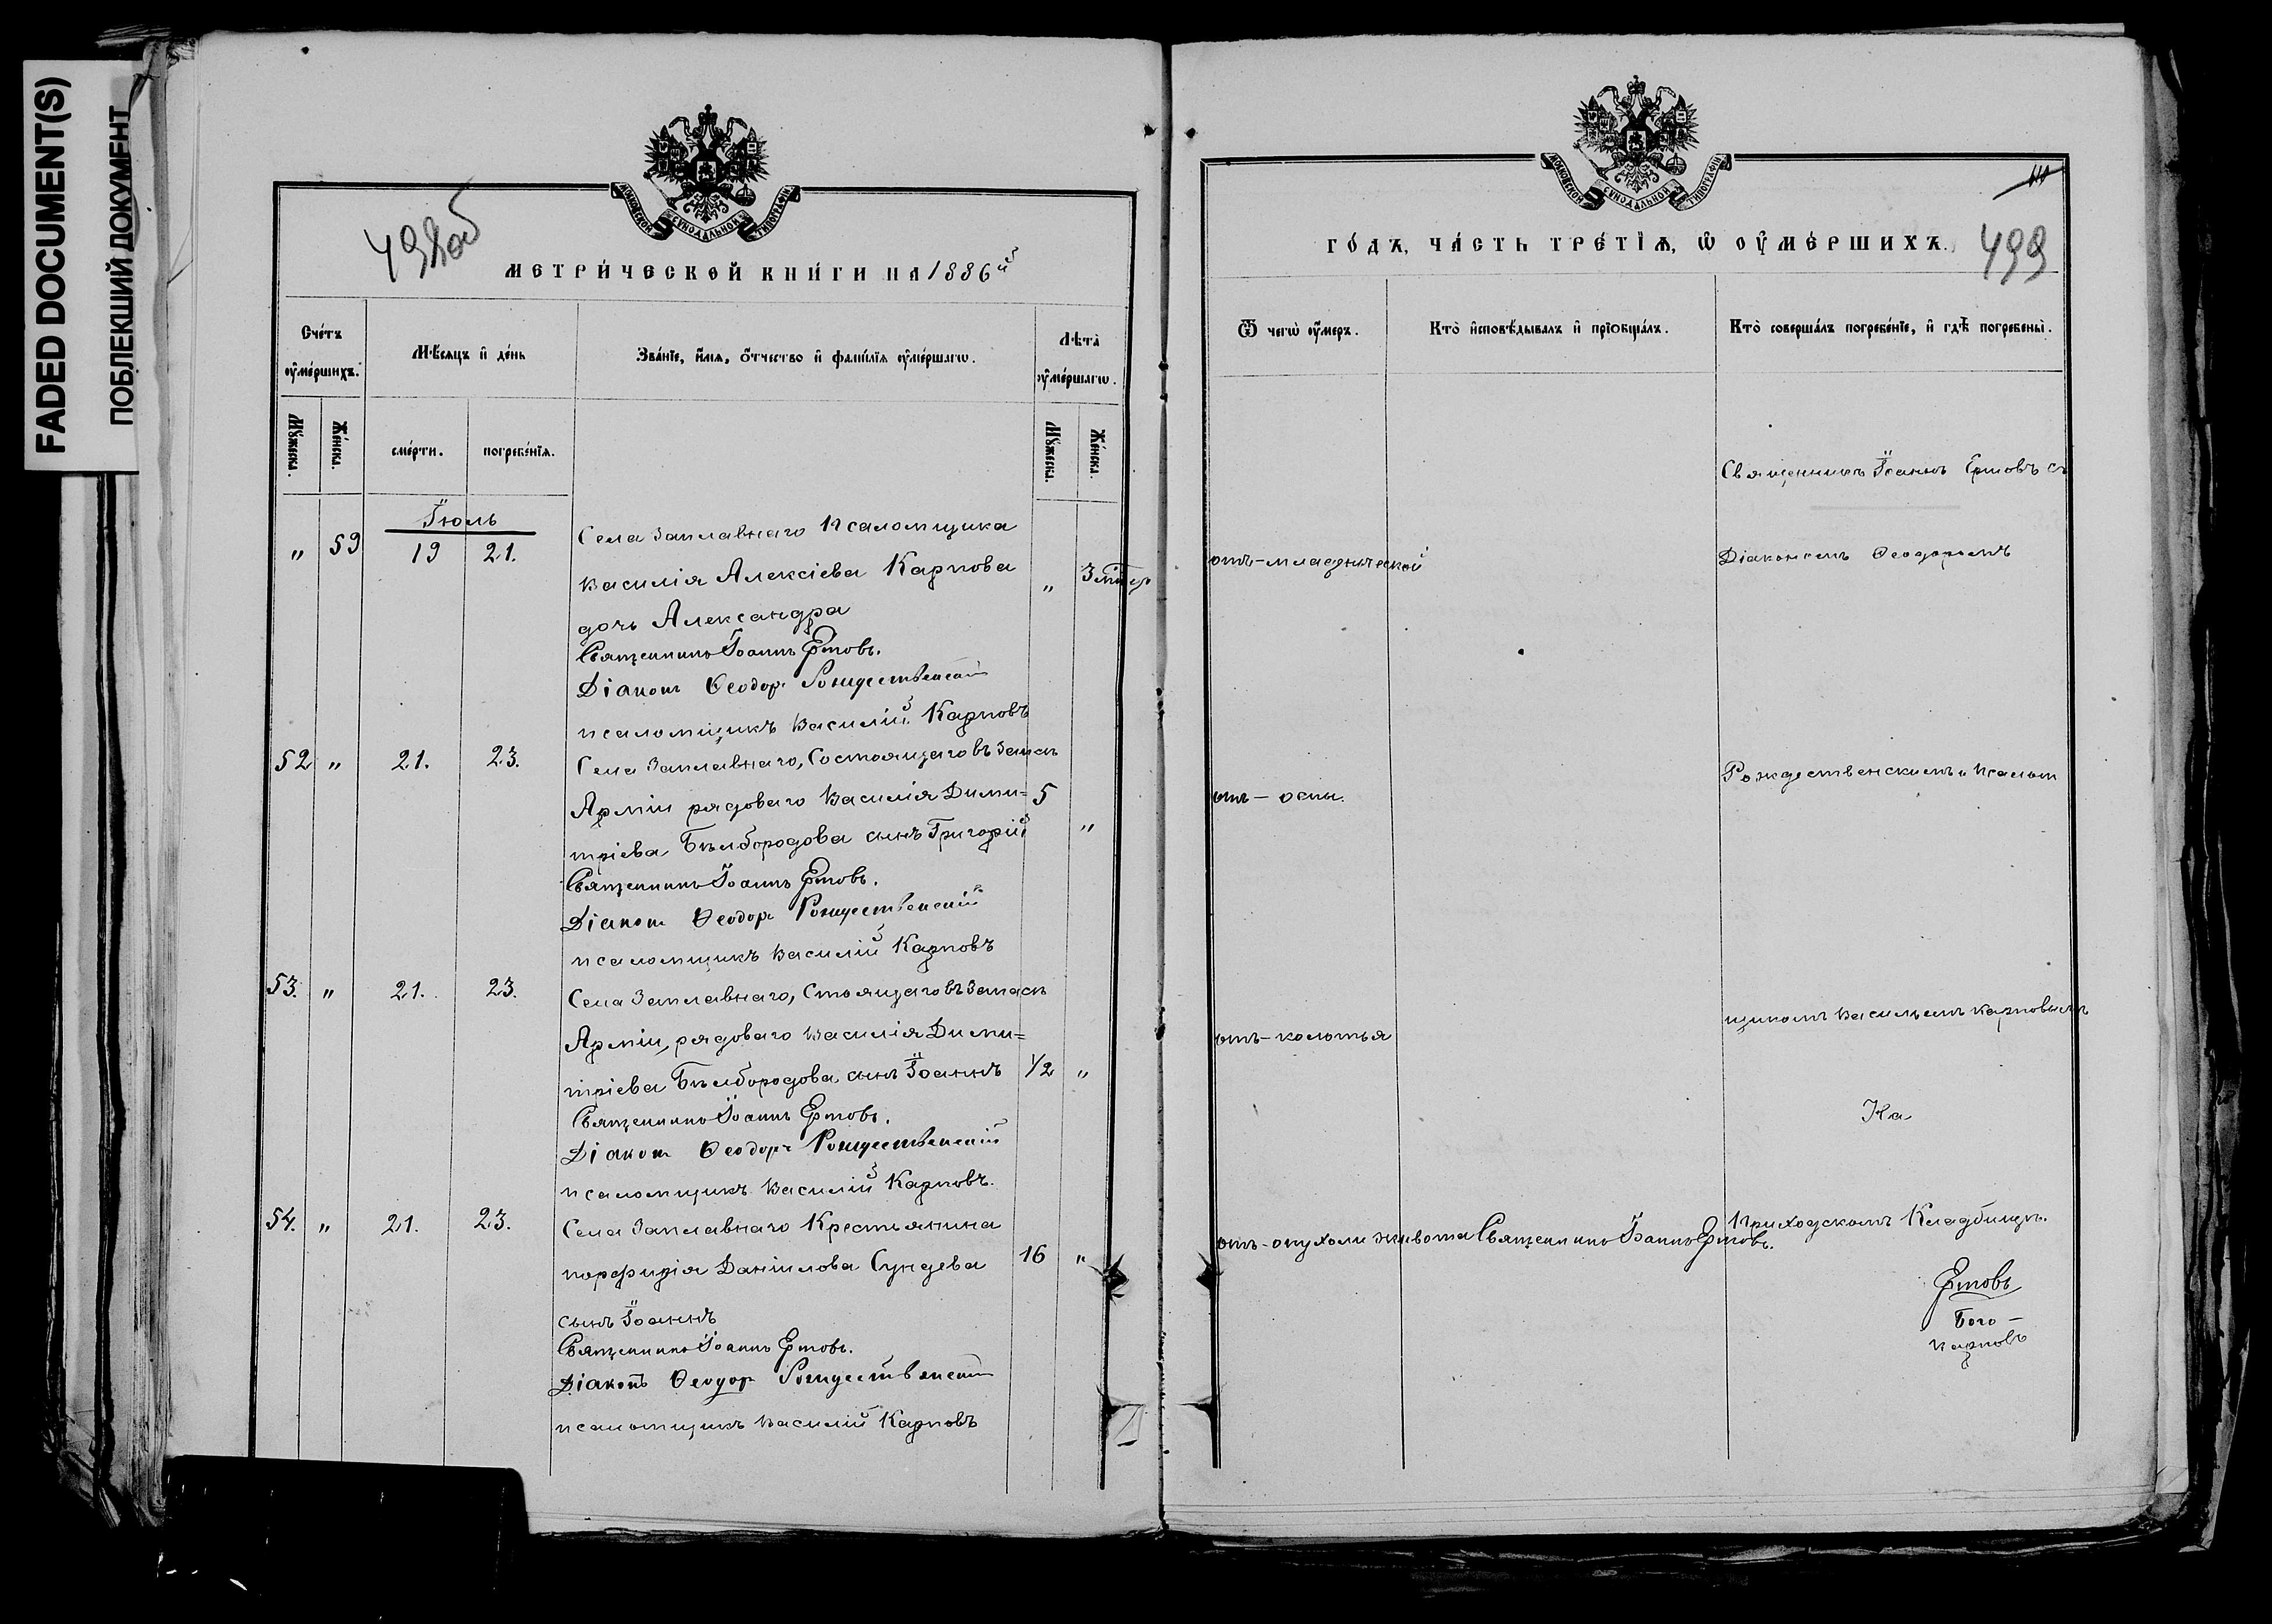 FADED DOCUMENT(S)
ПОБЛЕКШИЙ ДОКУМЕНТ
МОСКОВСКОЙ СѴНОДАЛЬНОЙ ТИПОГРАФІИ
498об
МЕТРИ́ЧЕСКОЙ КНИ́ГИ НА 1886й
Сче́тъ ᲂу҆ме́ршихъ.
Мѣ́сяцъ и҆ де́нь
Зва́нїе, и҆́мѧ, ѻ҆́тчество и҆ фами́лїѧ ᲂу҆ме́ршагѡ.
Лѣта̀ ᲂу҆ме́ршагѡ.
Мꙋ́жеска.
Же́нска.
сме́рти.
погребе́нїѧ.
Мꙋ́жеска.
Же́нска.
Іюль
" 59 19 21.
Села Заплавнаго Псаломщика
Василія Алексіева Карпова
" 3
дочь Александра
Священникъ Іоаннъ Ертовъ.
Діаконъ Ѳеодоръ Рождественскій
псаломщикъ Василій Карповъ
52 " 21. 23.
Села Заплавнаго, Состоящаго въ Запасѣ
Арміи рядоваго Василія Дими=
5 "
тріева Бѣлбородова сынъ Григорій
Священникъ Іоаннъ Ертовъ.
Діаконъ Ѳеодоръ Рождественскій
псаломщикъ Василій Карповъ
53. " 21. 23.
Села Заплавнаго, Стоящаго въ Запасѣ
Арміи, рядоваго Василія Дими=
тріева Бѣлбородова сынъ Іоаннъ
1/2 "
Священникъ Іоаннъ Ертовъ.
Діаконъ Ѳеодоръ Рождественскій
псаломщикъ Василій Карповъ.
54. " 21. 23.
Села Заплавнаго Крестьянина
порфирія Даніилова Сундева
16 "
сынъ Іоаннъ
Священникъ Іоаннъ Ертовъ.
Діаконъ Ѳеодоръ Рождественскій
псаломщикъ Василій Карповъ
МОСКОВСКОЙ СѴНОДАЛЬНОЙ ТИПОГРАФІИ
ГО́ДЪ, ЧА́СТЬ ТРЕ́ТЇѦ, Ѡ҆ ОУ҆МЕ́РШИХЪ.
499
Ѿ чегѡ̀ ᲂу҆́меръ.
Кто̀ и҆сповѣ́дывалъ и҆ прїобща́лъ.
Кто̀ соверша́лъ погребе́нїе, и҆ гдѣ̀ погребены̀.
Священникъ Іоаннъ Ертовъ съ
отъ-младенческой
Діакономъ Ѳеодоромъ
отъ - оспы.
Рождественскимъ и Псалом
отъ-колотья
щикомъ Васильемъ Карповымъ
На
Приходскомъ Кладбищѣ.
отъ-опухоли живота Священникъ Іоаннъ Ертовъ.
Ертовъ
Бого -
Карповъ